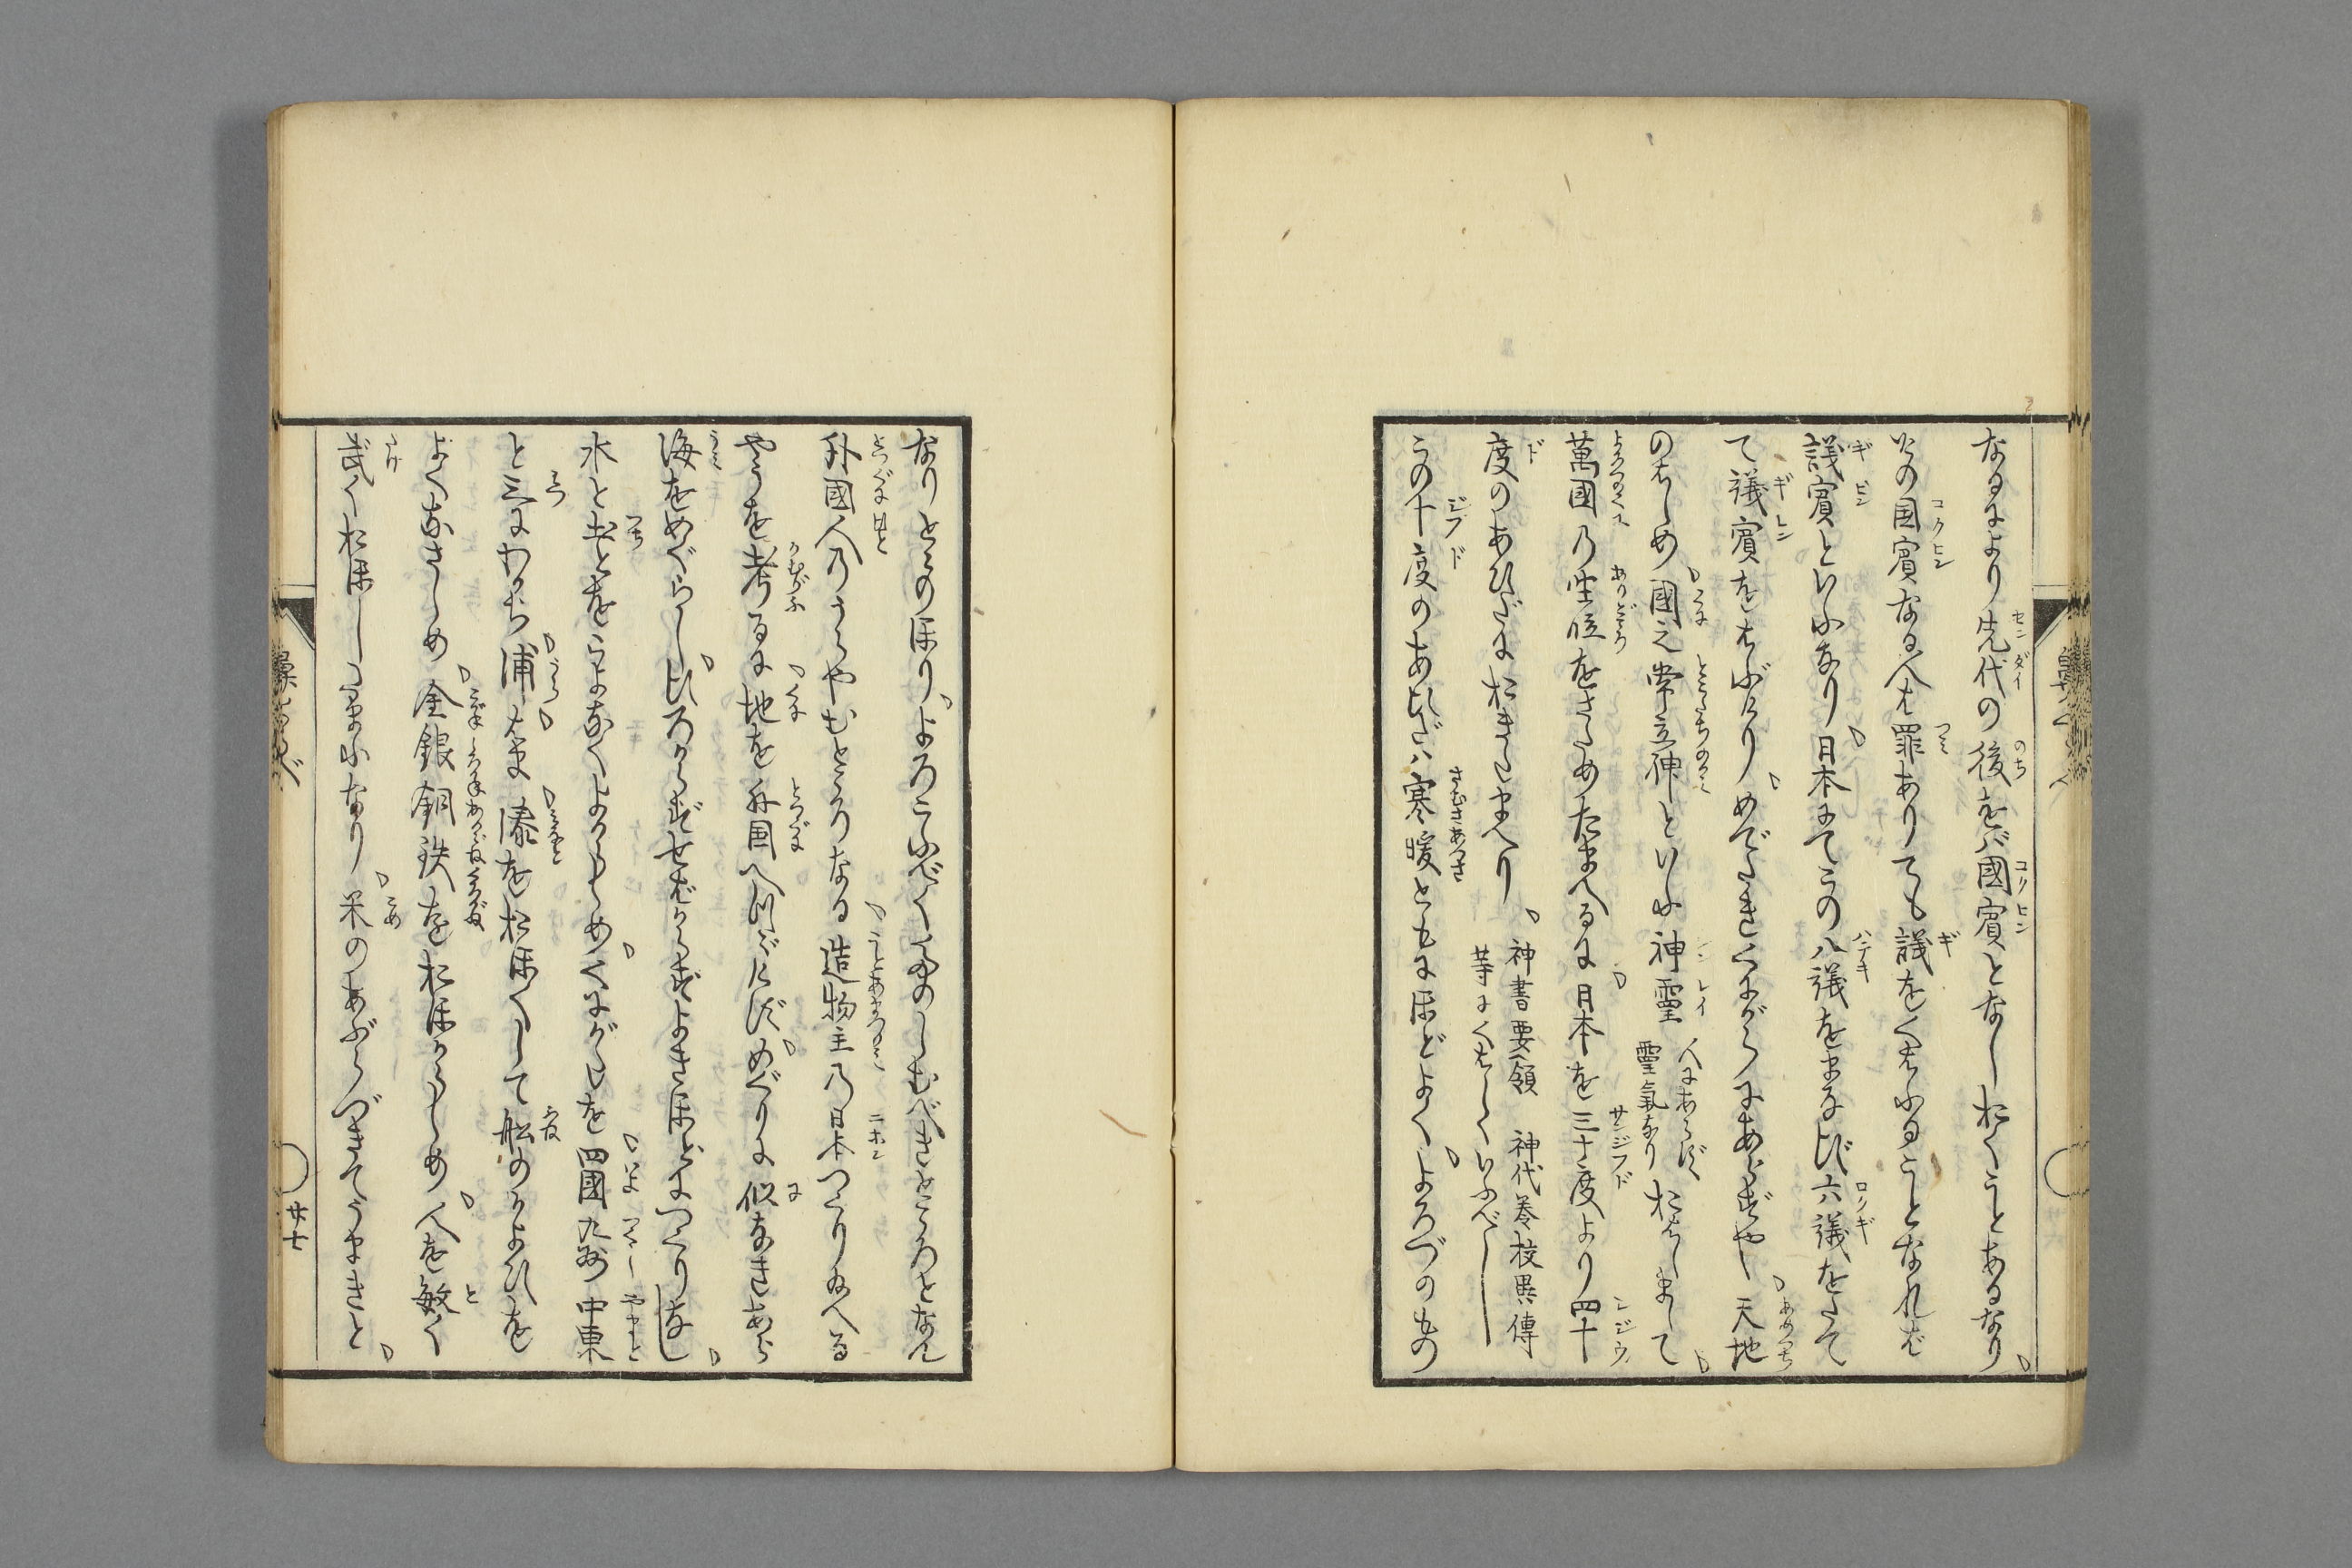 なるにより先代の後をバ國賓となしおくことあるなり
その国賓なる人は罪ありても議をくはふることなれば
議賓といふなり日本にてこの八議をまなび六議をたて
て議賓をはぶけりめでたきくにがらにあらずや天地
のはしめ國之常立神といふ神霊人にあらず霊氣なりおはしまして
萬國乃坐位をさだめたまへるに日本を三十度より四十
度のあひだにおきたまへり神書要領 神代巻校異傳等にくはしくいふべし
この十度のあひだハ寒暖ともにほどよくよろづのもの
なりとゝのほりよろこぶべくたのしむべきところとなん
外國人乃うらやむところなる造物主乃日本つくり給へる
やうを考るに地を外国へつゞけずめぐりに似なきあら
海をめぐらしひろからずせばからずよきほどにつくりなし
水と土とをうよなくよからしめくにがたを四國九州中東
と三にわかち浦はま湊をおほくして舩のかよひを
よくなさしめ金銀銅鉄をおほからしめ人を敏く
武くおほしたまふなり米のあぶらづきてうまきと
廿七